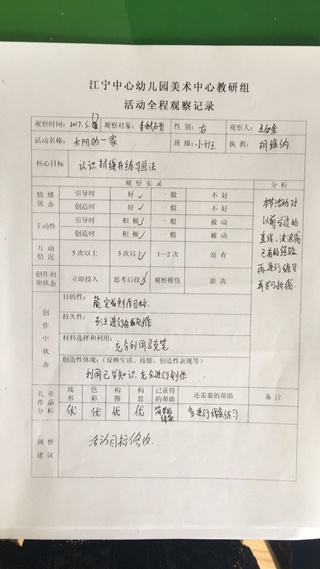 江宁中心幼儿园美术中心教研组
活动全程观察记录
观察时间: 2017.5. 观察对象: 性别: 观察人:
活动名称: 太阳的一家 班级: 小班 执教:
核心目标 认识折线并练习画法
观察实录 分析
情绪状态 引导时 好✓ 一般 不好
创造时 好✓ 一般 不好
主动性 引导时 积极✓ 一般 被动
创造时 积极✓ 一般 被动
互动情况 5次以上 3次以上✓ 1-2次 没有
创作初期状态 立即投入 思考后投入✓ 观察模仿 游离
本节活动对以前学过的直线、波浪线已有的经验再进行练习并学习折线。
创作中状态
目的性:
能完成创作目标.
持久性:
专注进行自己的创作
材料选择和利用:
充分利用马克笔
创造性体现:(反映生活、技能、创造性表现等)
利用已学知识充分进行创作
儿童作品分析 线形 色彩 构图 构思 已获得的帮助 还需要的帮助 备注
优 优 优 优 多进行线条练习
调整建议
活动目标修改.